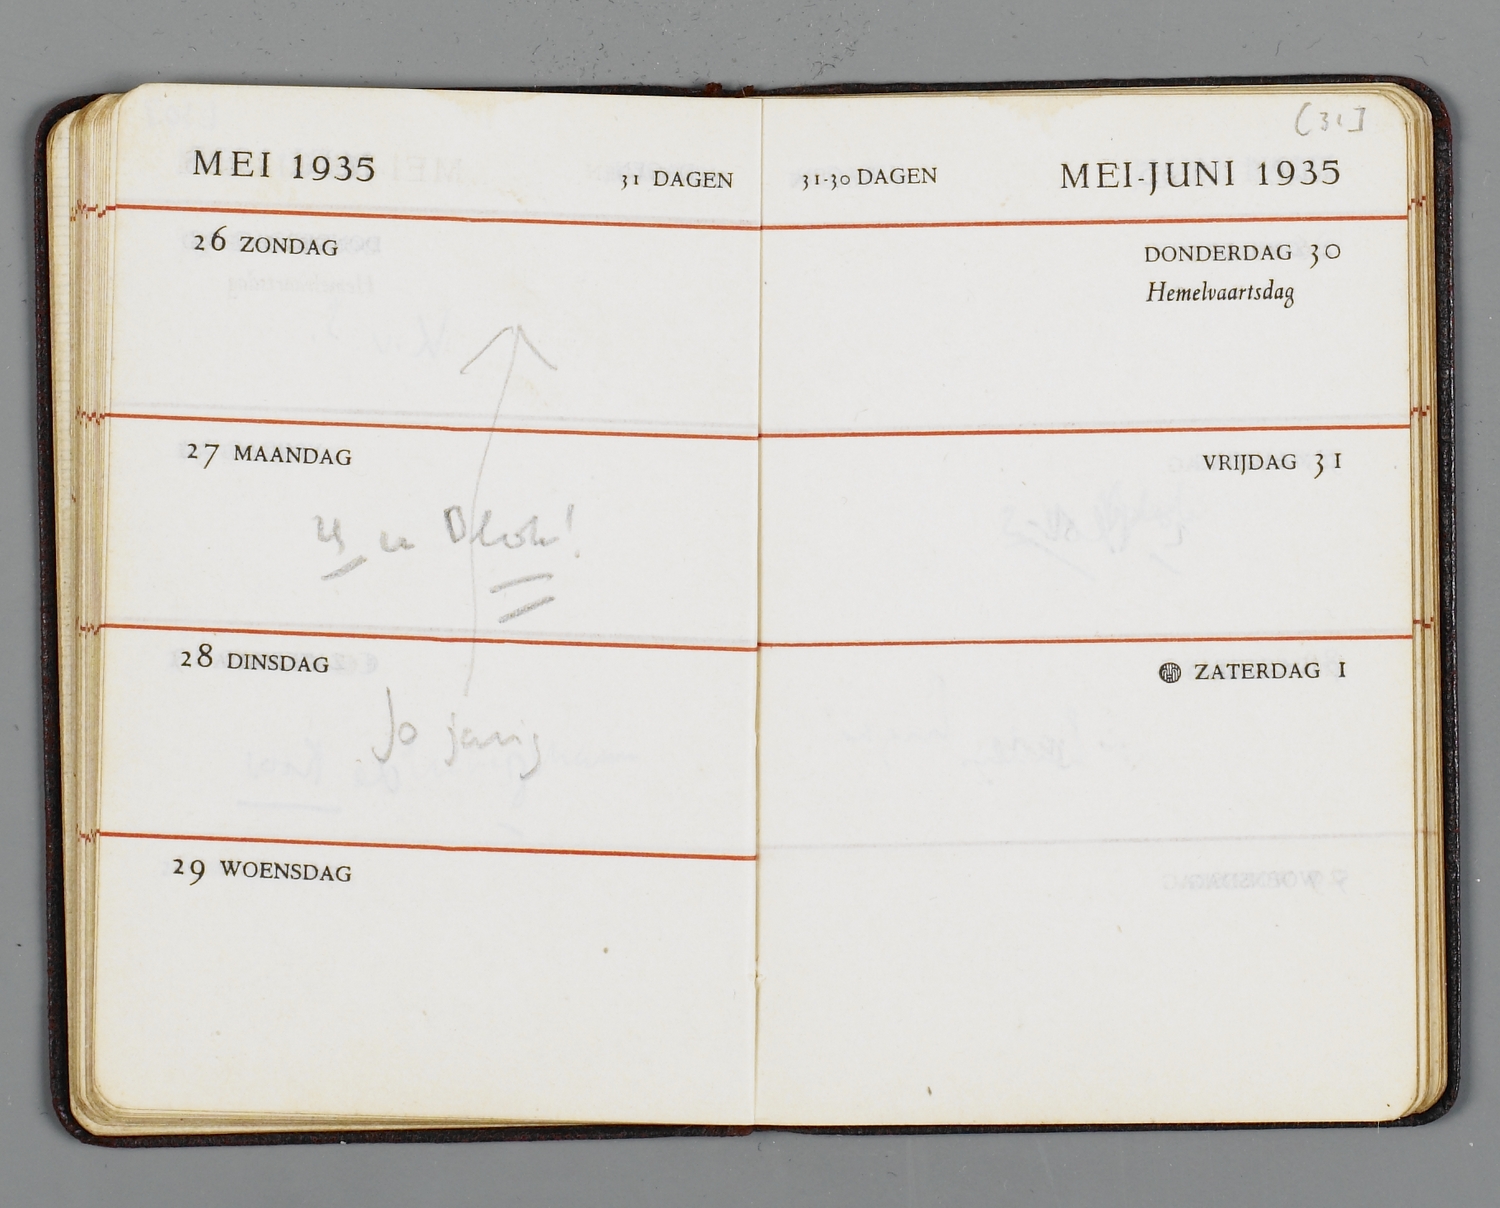 MEI 1935
31 DAGEN
26 ZONDAG
27 MAANDAG
28 DINSDAG
Jo jarig
29 WOENSDAG
[31]
31-30 DAGEN
MEI-JUNI 1935
DONDERDAG 30
Hemelvaartsdag
VRIJDAG 31
ZATERDAG 1